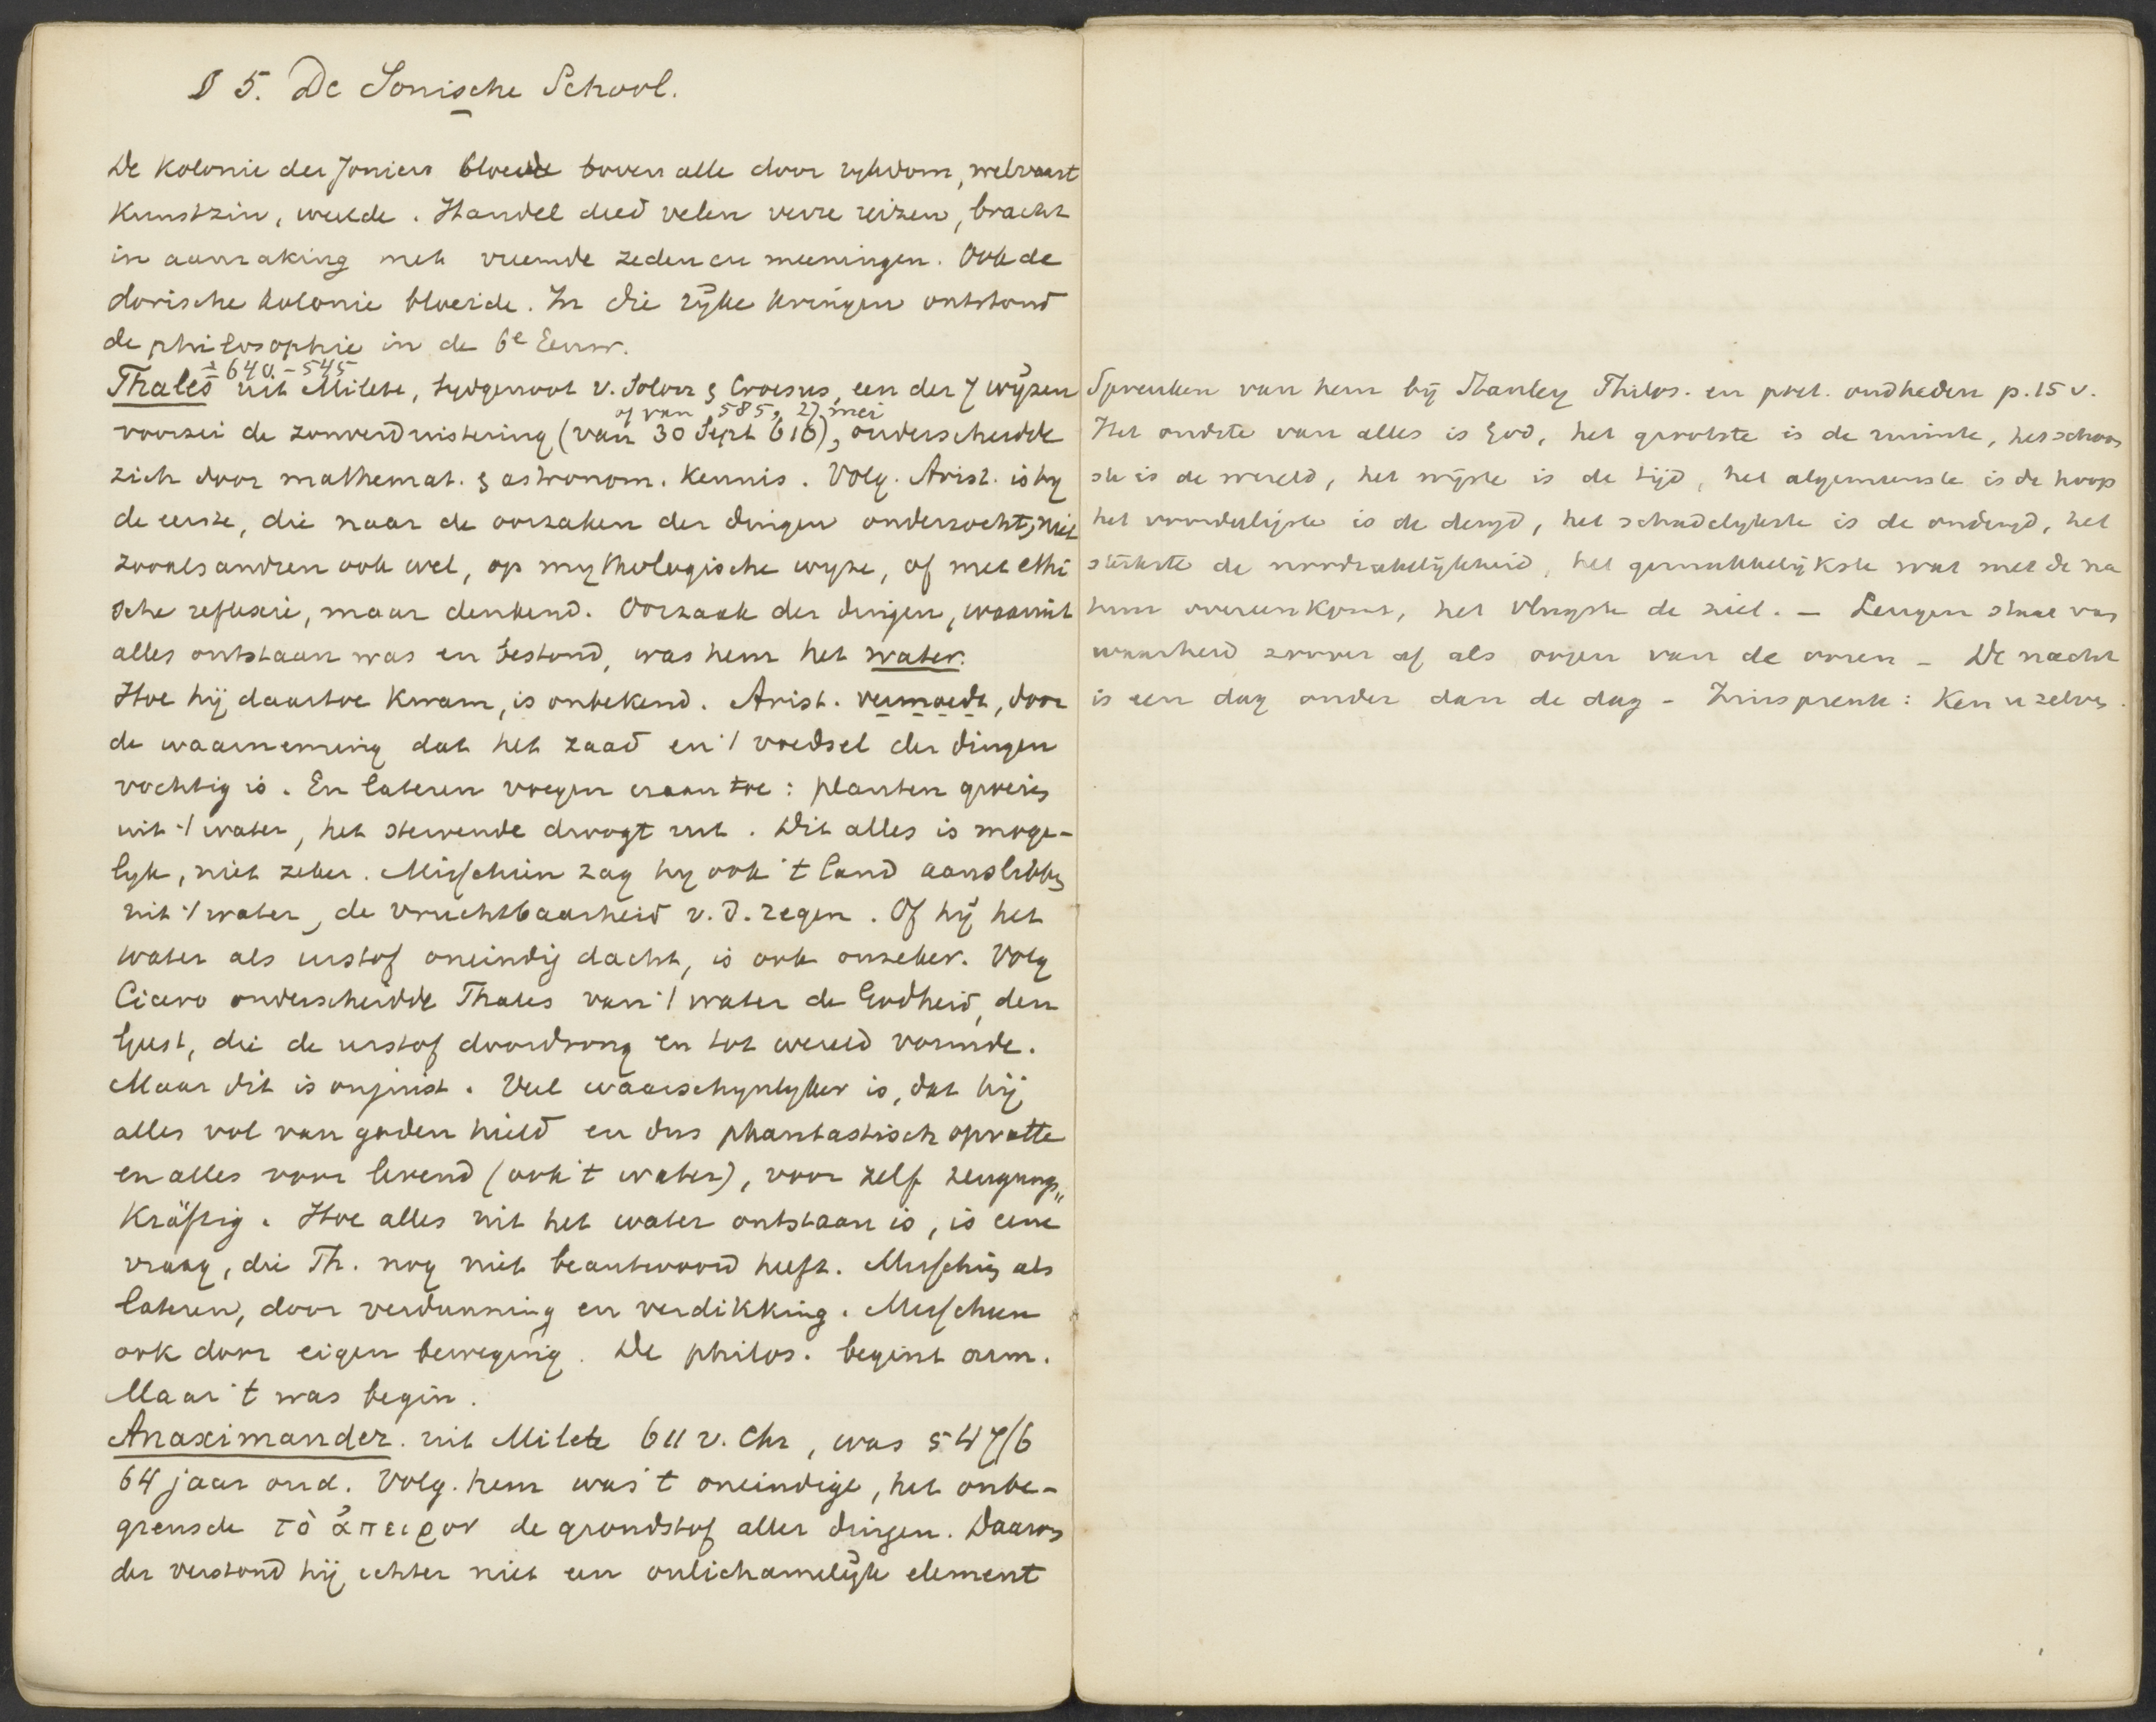 § 5. De Ionische School.
De kolonie der Joniers bloeide boven alle door rykdom, welvaart
Kunstzin, weelde. Handel deed velen verre reizen, bracht
in aanraking met vreemde zeden en meeningen. Ook de
dorische kolonie bloeide. In die rijke kringen ontstond
de philosophie in de 6e Eeuw.
± 640 - 545
Thales uit Milete, tydgenoot v. Solon & Croesus, een der 7 wijzen
of van 585, 27 mei
voorzei de zonverduistering (van 30 Sept 610), onderscheidde
zich door mathemat. & astronom. Kennis. Volg. Arist. is hy
de eerste, die naar de oorzaken der dingen onderzocht, niet
zooals andren ook wel, op mythologische wyze, of met ethi
sche reflexie, maar denkend. Oorzaak der dingen, waaruit
alles ontstaan was en bestond, was hem het water.
Hoe hij daartoe kwam, is onbekend. Arist. vermoedt, door
de waarneming dat het zaad en 't voedsel der dingen
vochtig is. En lateren voegen eraan toe: planten groeien
uit 't water, het stervende droogt uit. Dit alles is moge-
lyk, niet zeker. Misschien zag hy ook 't land aanslibben
uit 't water, de vruchtbaarheid v. d. regen. Of hij het
water als urstof oneindig dacht, is ook onzeker. Volg
Cicero onderscheidde Thales van 't water de Godheid, den
Geest, die de urstof doordrong en tot wereld vormde.
Maar dit is onjuist. Veel waarschynlyker is, dat hij
alles vol van goden hield en dus phantastisch opvatte
en alles voor levend (ook 't water), voor zelf zeugungs"
kräftig. Hoe alles uit het water ontstaan is, is eene
vraag, die Th. nog niet beantwoord heeft. Misschien als
lateren, door verdunning en verdikking. Misschien
ook door eigen beweging. De philos. begint arm.
Maar 't was begin.
Anaximander. uit Milete 611 v. Chr, was 547/6
64 jaar oud. Volg. hem was 't oneindige, het onbe-
grensde τὸ ἄπειρον de grondstof aller dingen. Daaron
der verstond hij echter niet een onlichamelijk element
Spreuken van hem bij Stanley Philos. en oudheden p. 15 v.
Het oudste van alles is God, het grootste is de ruimte, het schoon
ste is de wereld, het wijste is de tijd, het algemeenste is de hoop
het voordeligste is de deugd, het schadelykste is de ondeugd, het
sterkste de noodzakelijkheid, het gemakkelijkste wat met de na
tuur overeenkomt, het vlugste de ziel. — Leugen staat van
waarheid zoover af als oogen van de ooren – De nacht
is een dag ouder dan de dag – Zinspreuk: Ken u zelven.